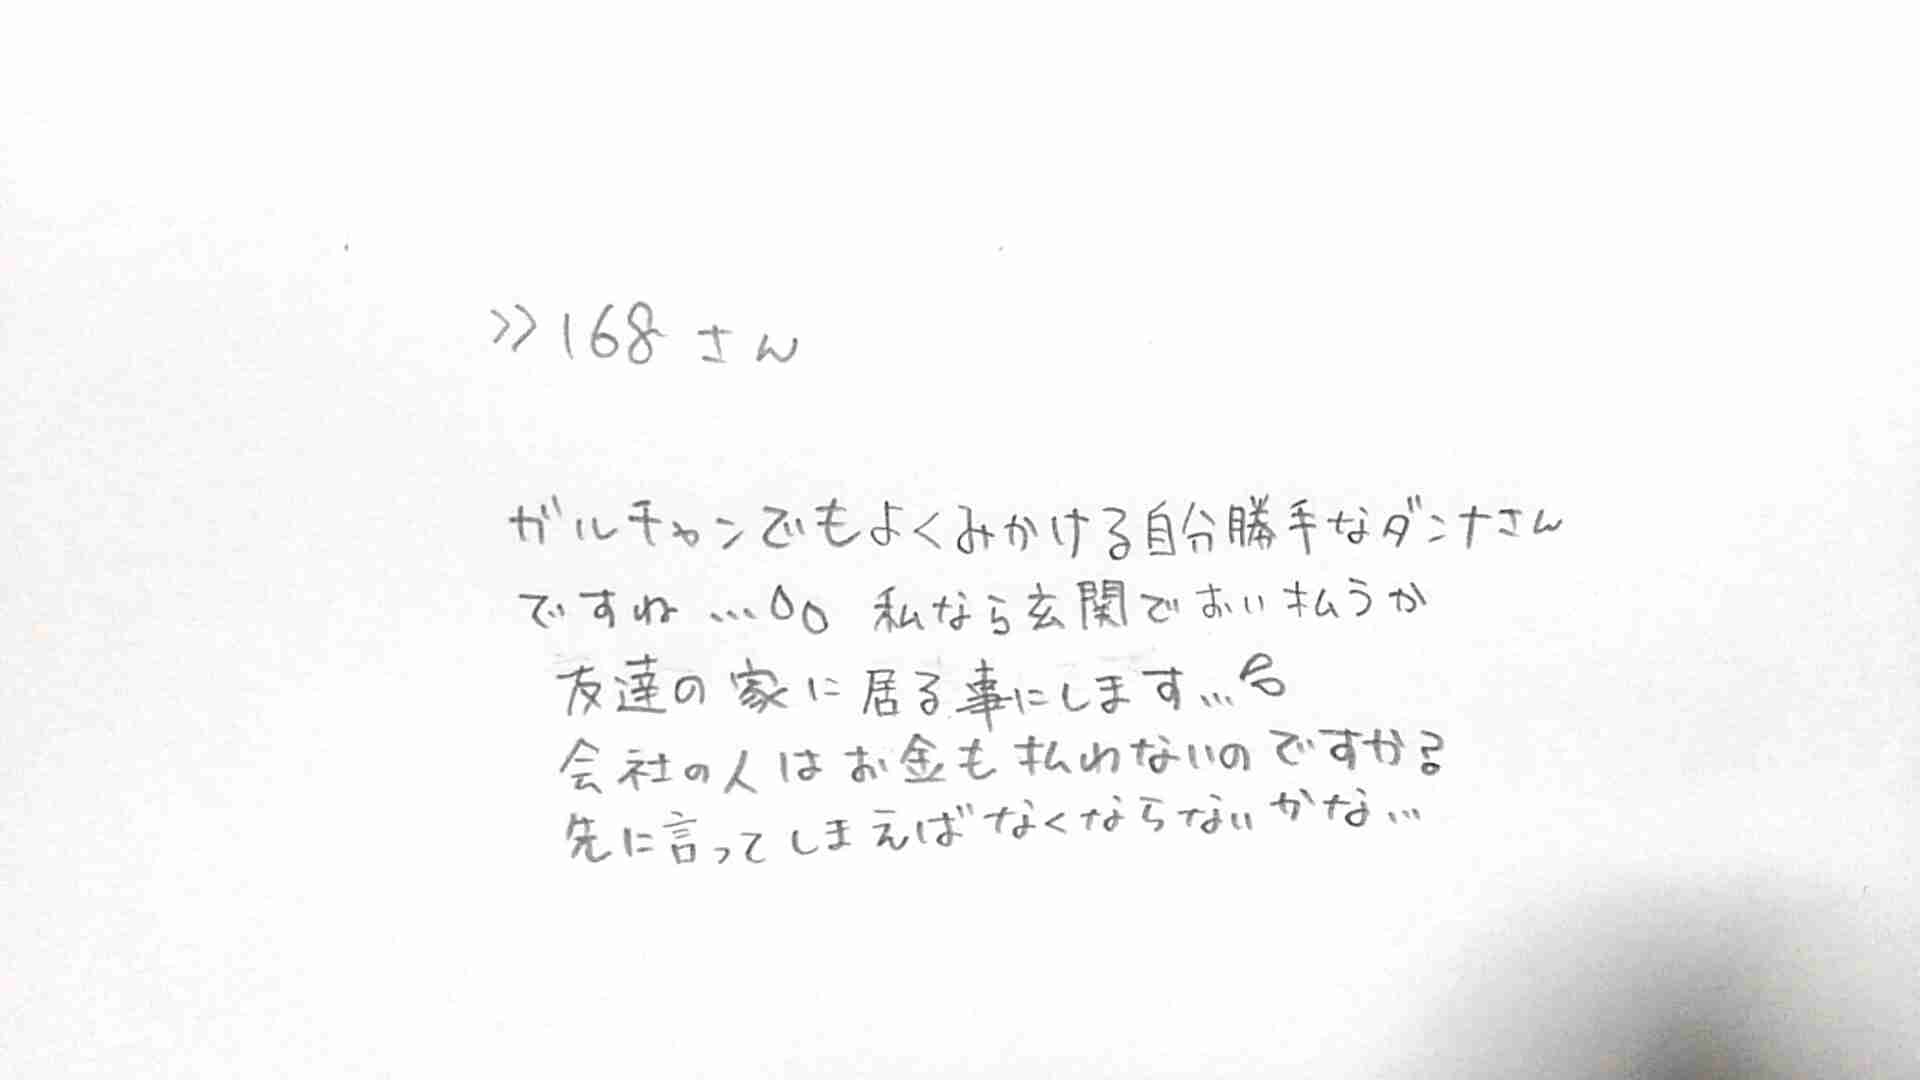 >>168さん
ガルチャンでもよくみかける自分勝手なダンナさん
ですね… 私なら玄関でおい払うか
友達の家に居る事にします…
会社の人はお金も払わないのですか?
先に言ってしまえばなくならないかな…